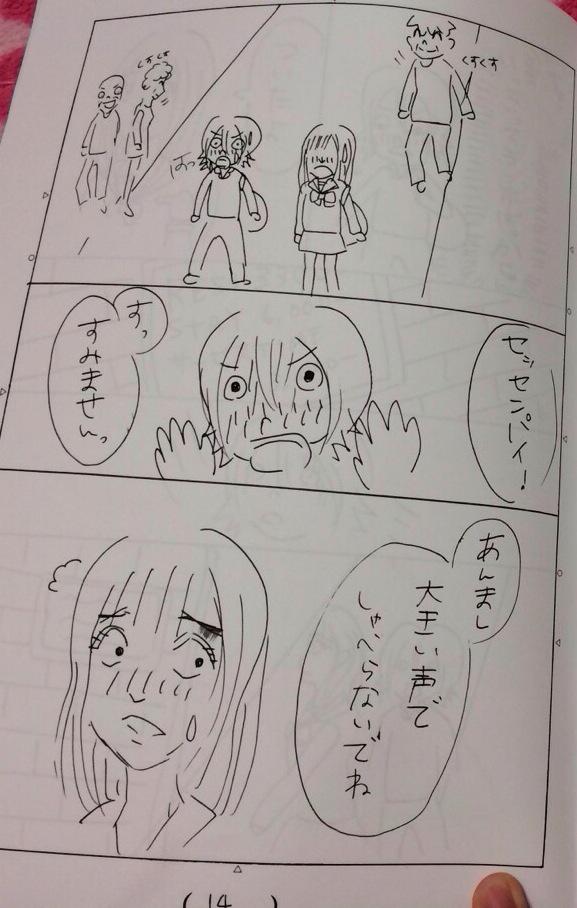 くすくす
はっ
くすくす
セッセンパイ!
すっ
すみませんっ
あんまし
大きい声で
しゃべらないでね
(14)